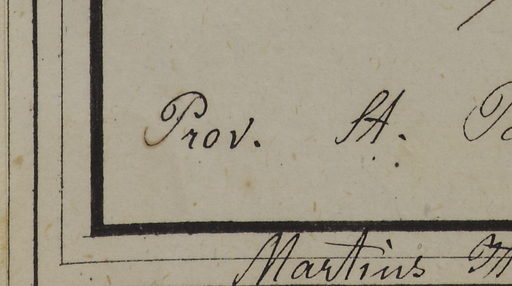 Prov. St.
Martius